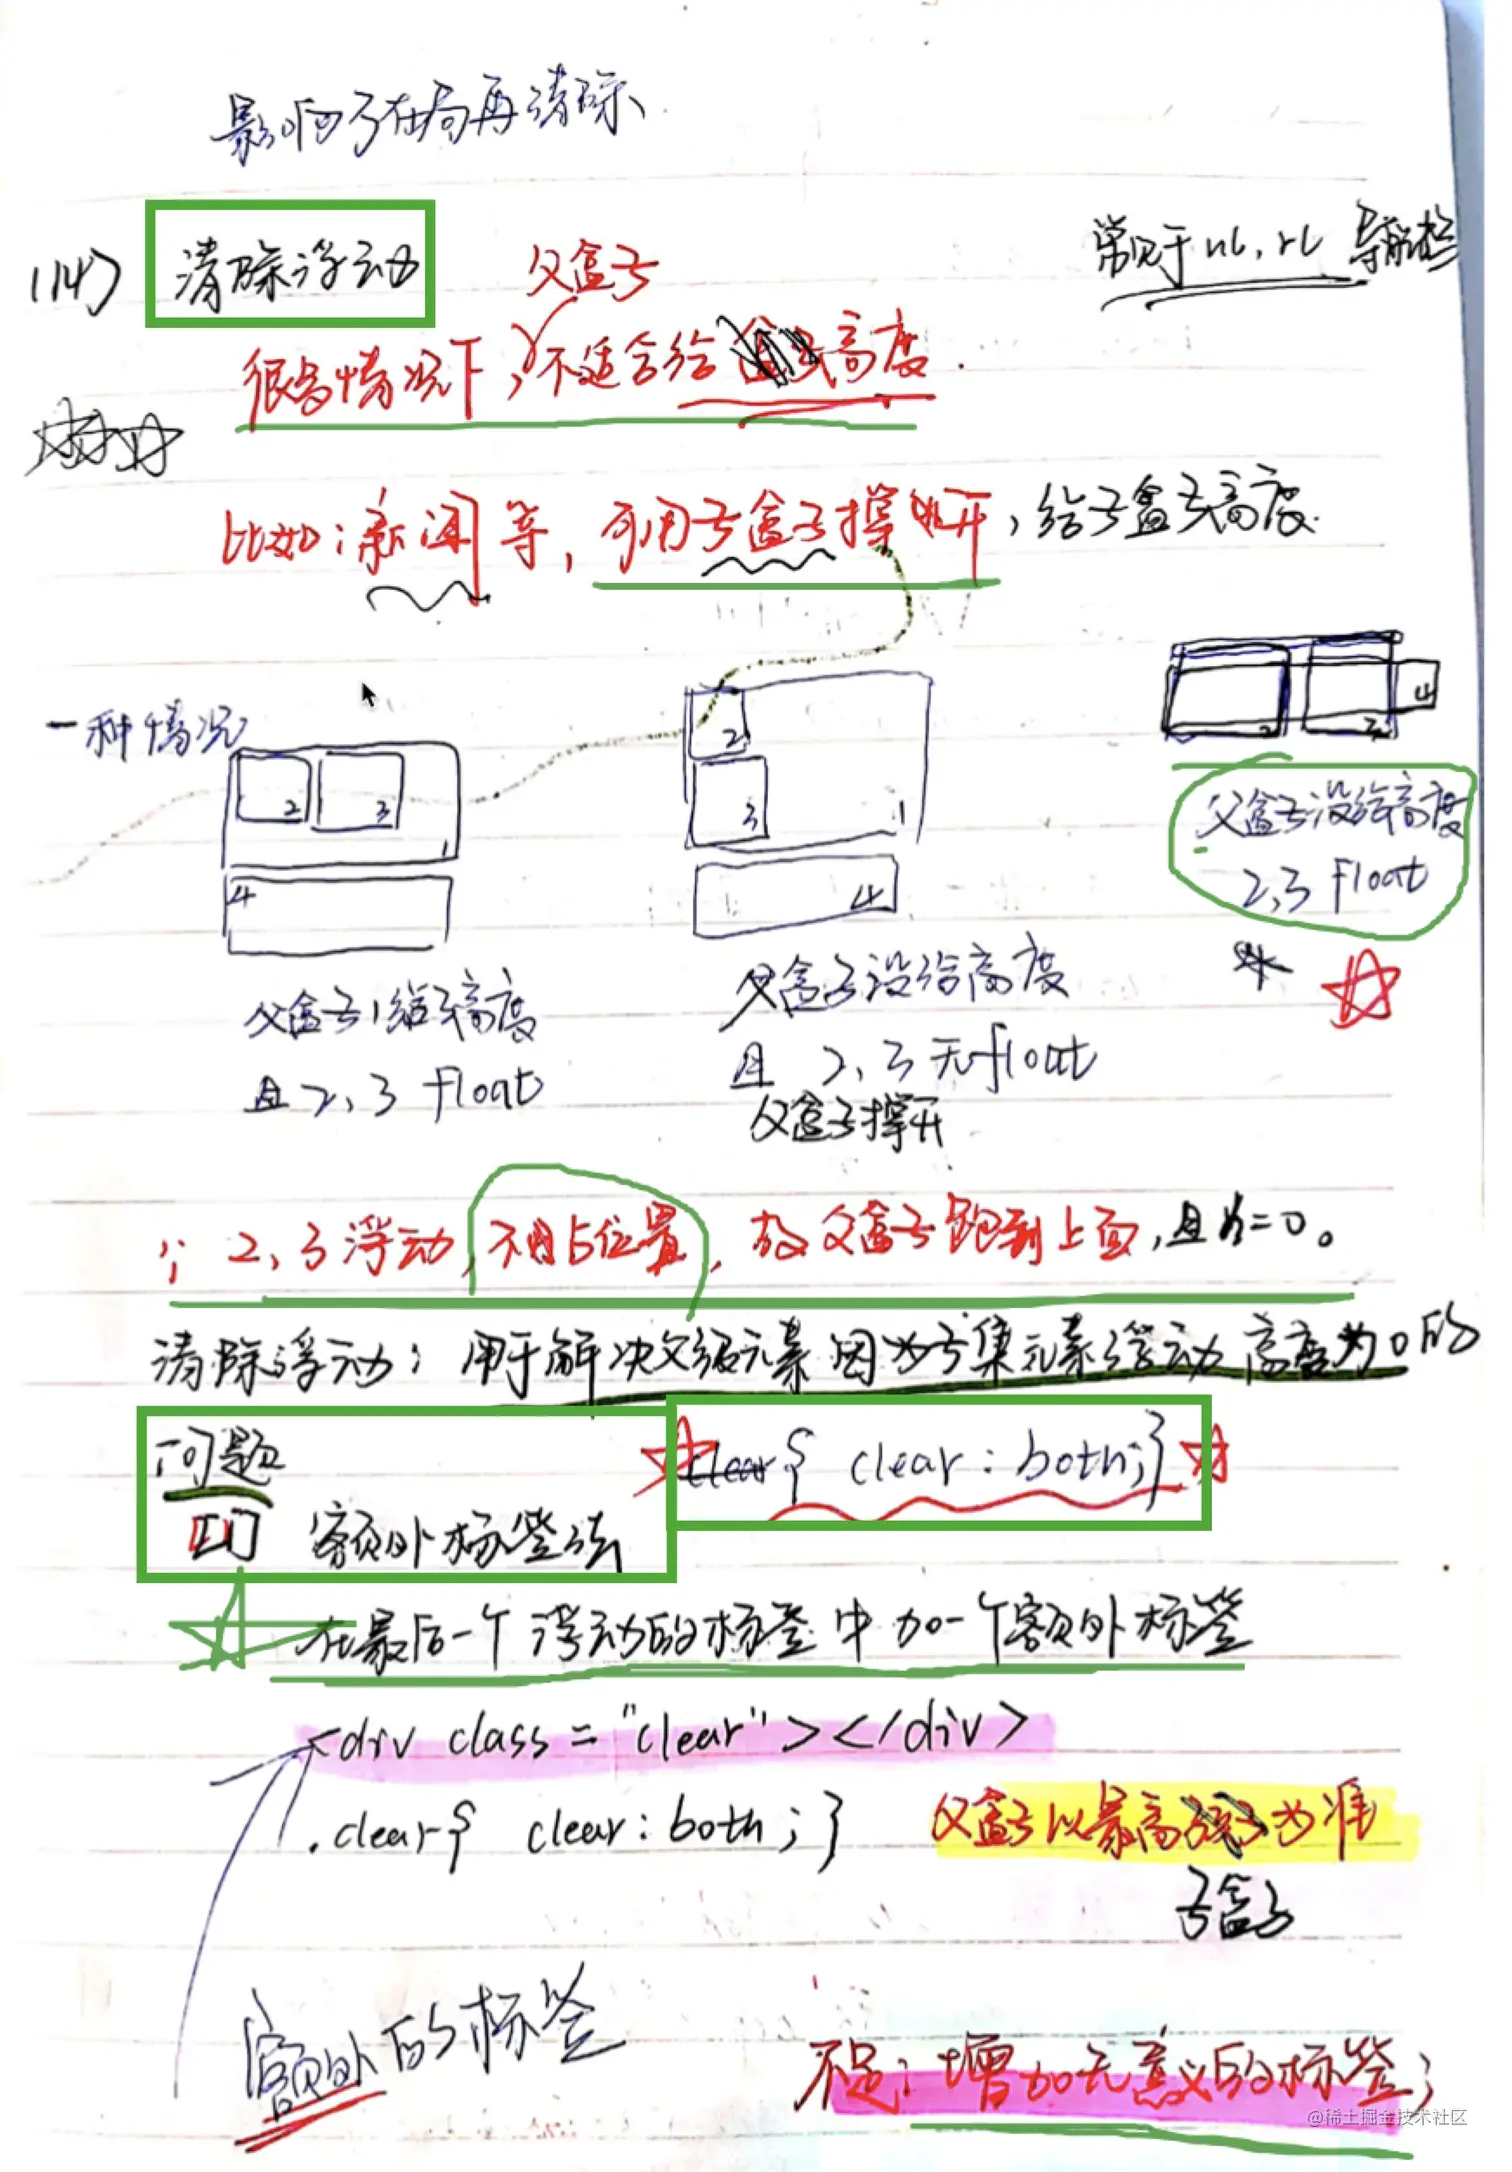 影响了布局再清除
(14) 清除浮动
父盒子
常见于ul, rl 导航栏
很多情况下,不适合给高度.
比如:新闻等,可用子盒子撑开,给子盒子高度.
一种情况
2
3
1
4
2
3
1
4
2
3
4
父盒子没给高度
2,3 float
父盒子1给了高度
且2,3 float
父盒子没给高度
且 2,3无float
父盒子撑开
2,3浮动,不用占位置,故父盒子跑到上面,且为=0。
清除浮动:用于解决父级元素因为子集元素浮动高度为0的
问题
clear{ clear:both;}
额外标签法
在最后一个浮动的标签中加一个额外标签
<div class="clear"></div>
.clear{ clear:both;}
父盒子以最高为准
子盒子
额外的标签
不足:增加无意义的标签;
@稀土掘金技术社区